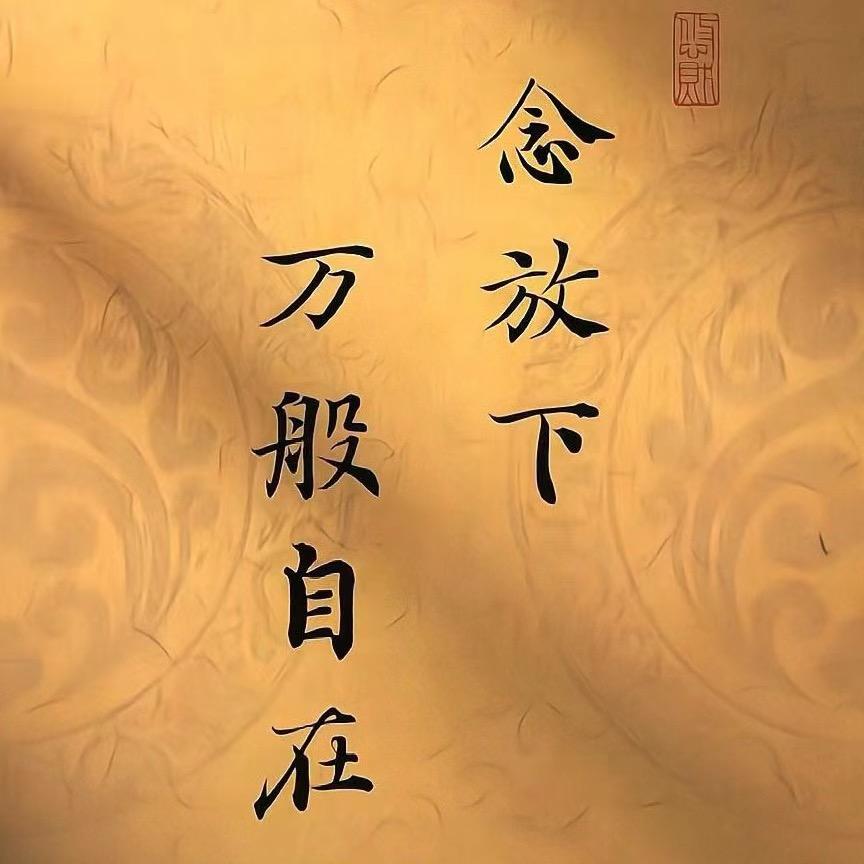 念放下
万般自在